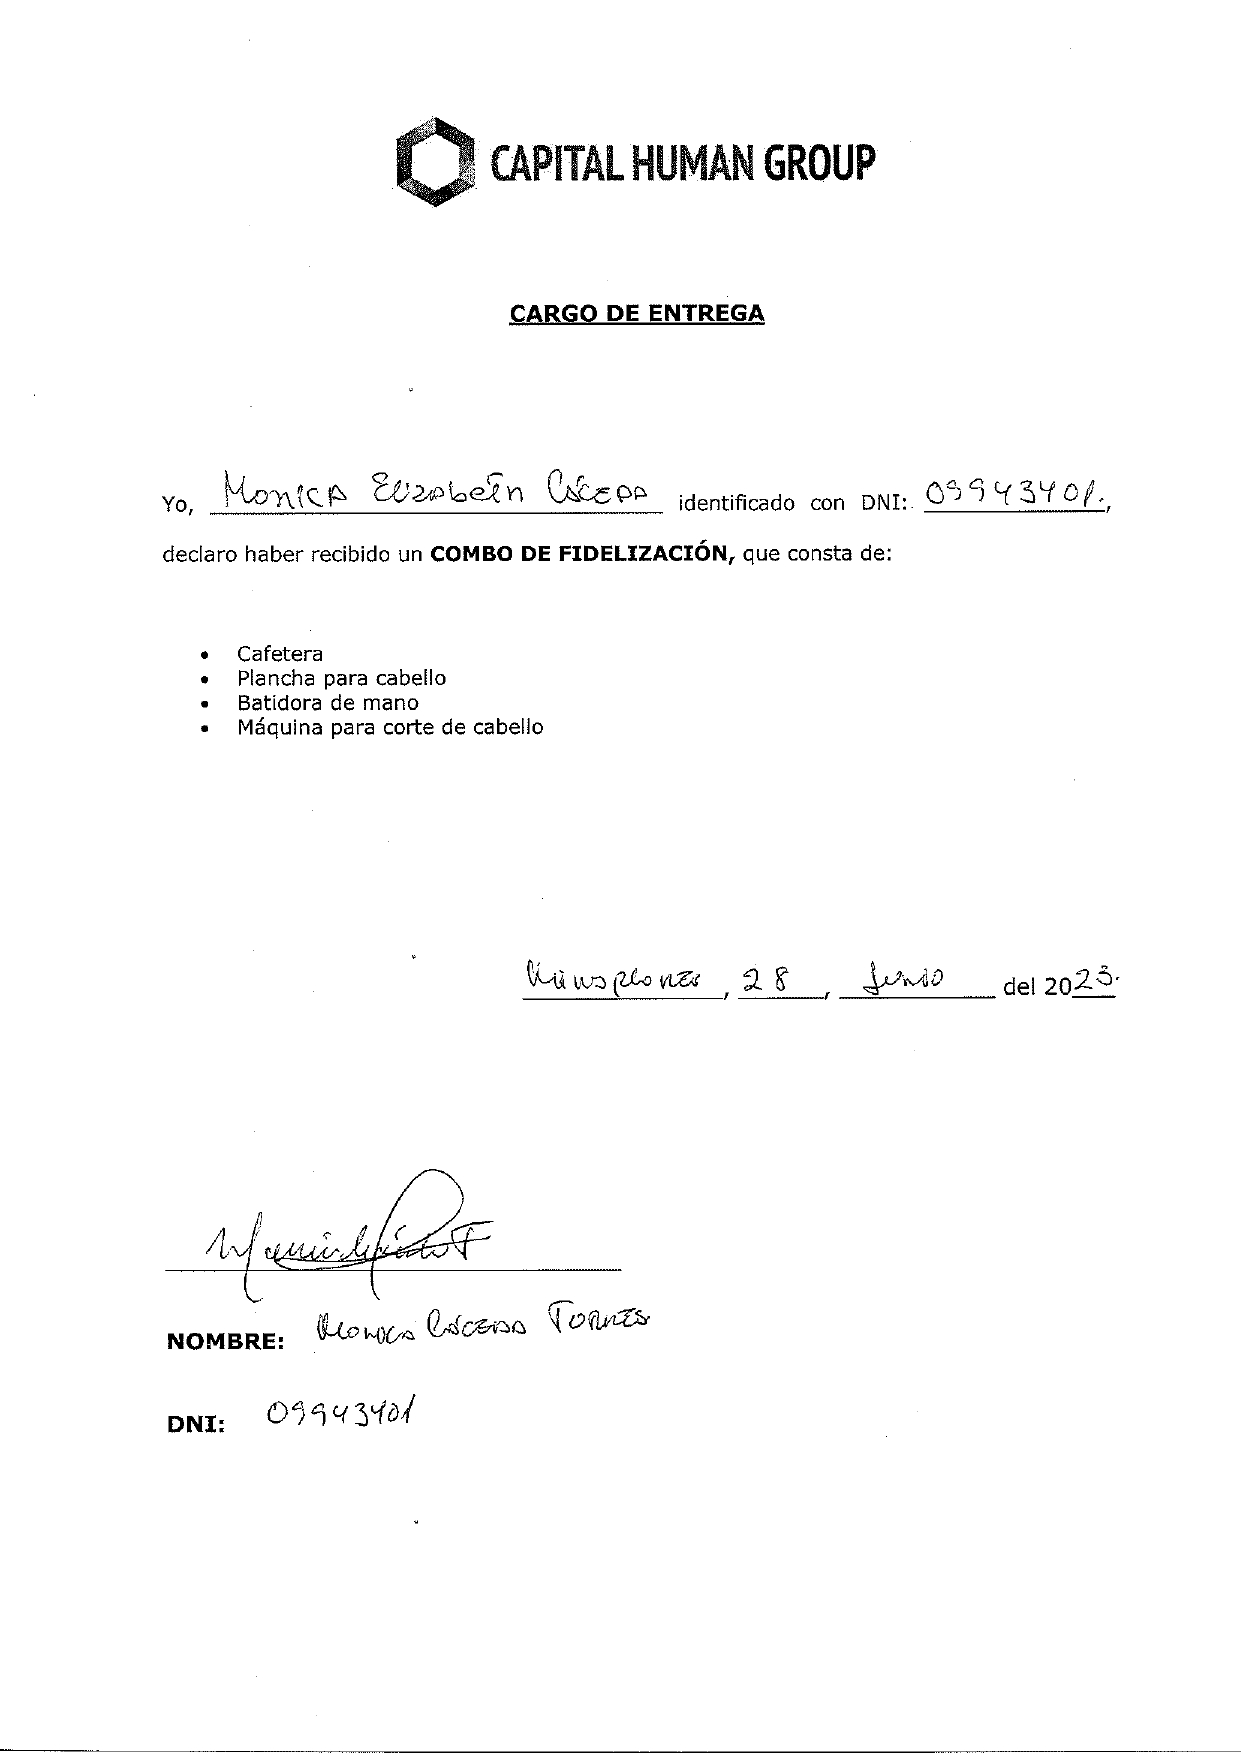 CAPITAL HUMAN GROUP
CARGO DE ENTREGA
Yo, Monica Elizabeth Cáceda identificado con DNI: 09943401.,
declaro haber recibido un COMBO DE FIDELIZACIÓN, que consta de:
• Cafetera
• Plancha para cabello
• Batidora de mano
• Máquina para corte de cabello
Miraflores, 28, Junio del 2023.
NOMBRE: Monica Cáceda Torres
DNI: 09943401